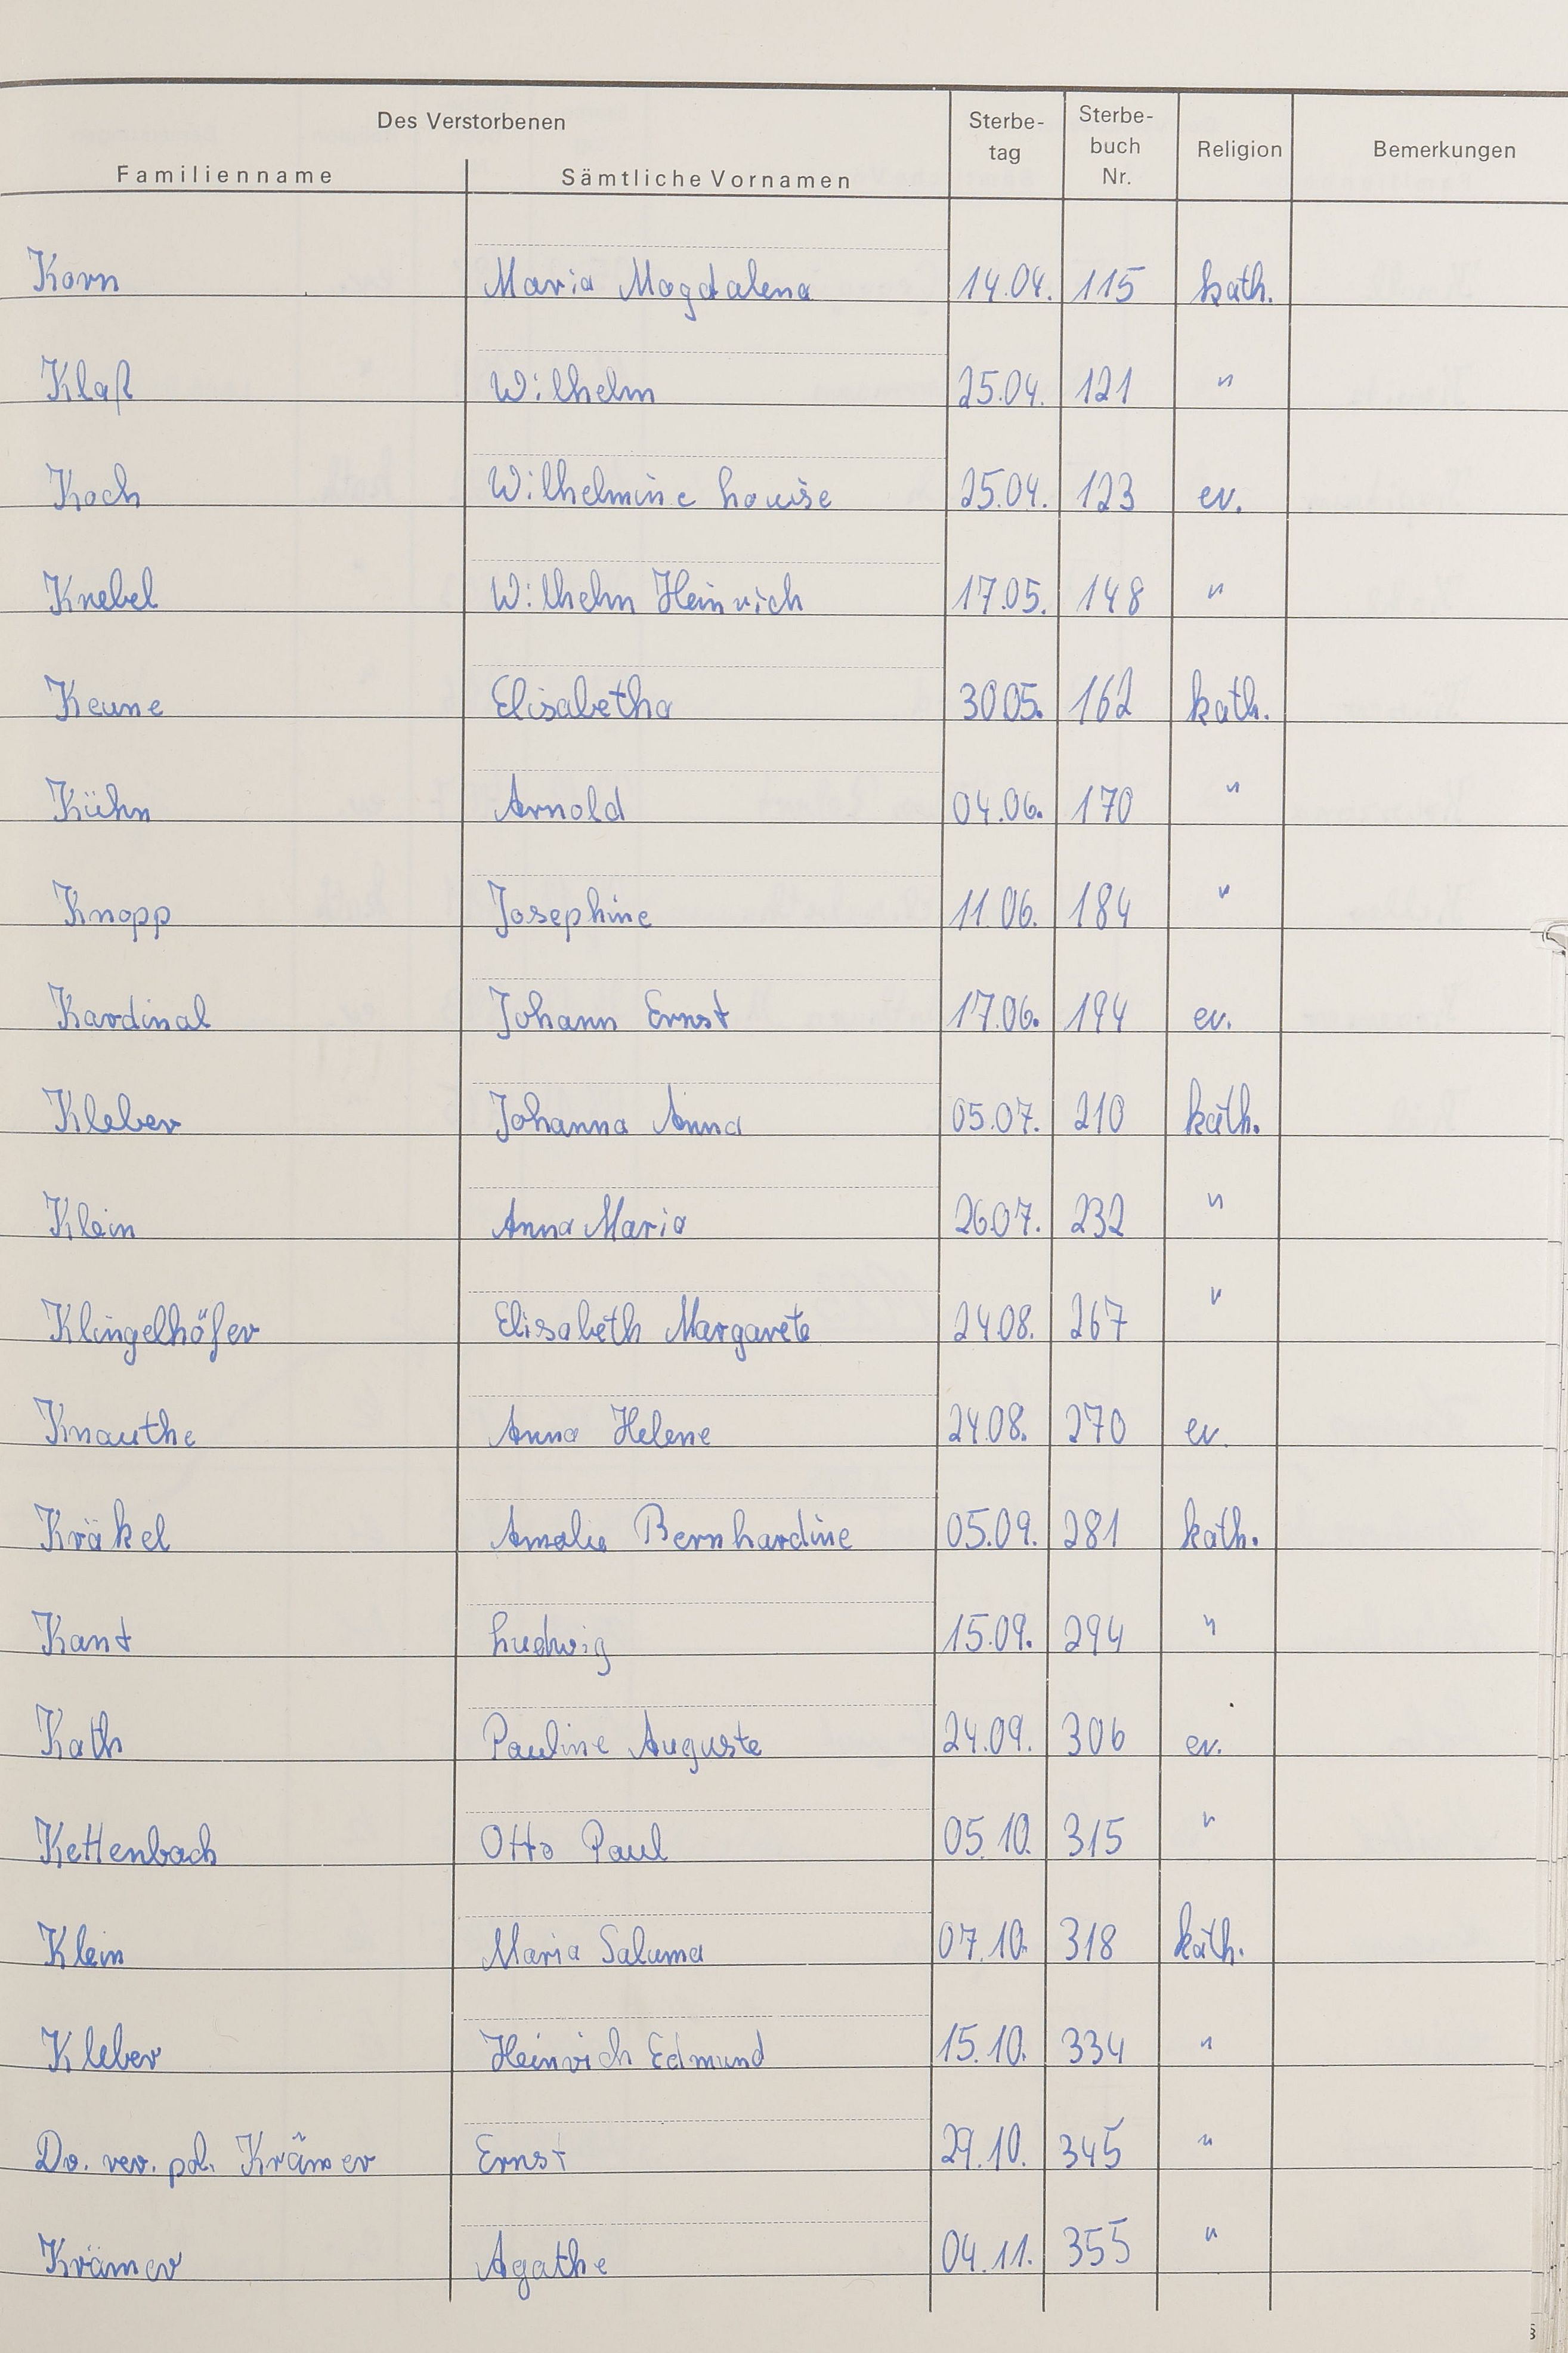 Des Verstorbenen
Familienname Sämtliche Vornamen Sterbe-tag Sterbe-buch Nr. Religion Bemerkungen
Korn Maria Magdalena 14.04. 115 kath.
Klaß Wilhelm 25.04. 121 "
Koch Wilhelmine Louise 25.04. 123 ev.
Knebel Wilhelm Heinrich 17.05. 148 "
Keune Elisabetha 30.05. 162 kath.
Kühn Arnold 04.06. 170 "
Knopp Josephine 11.06. 184 "
Kardinal Johann Ernst 17.06. 194 ev.
Kleber Johanna Anna 05.07. 210 kath.
Klein Anna Maria 26.07. 232 "
Klingelhöfer Elisabeth Margarete 24.08. 267 "
Knauthe Anna Helene 24.08. 270 ev.
Kräkel Amalie Bernhardine 05.09. 281 kath.
Kant Ludwig 15.09. 294 "
Kath Pauline Auguste 24.09. 306 ev.
Kettenbach Otto Paul 05.10. 315 "
Klein Maria Saluma 07.10. 318 kath.
Kleber Heinrich Edmund 15.10. 334 "
Dr. rer. pol. Krämer Ernst 29.10. 345 "
Krämer Agathe 04.11. 355 "